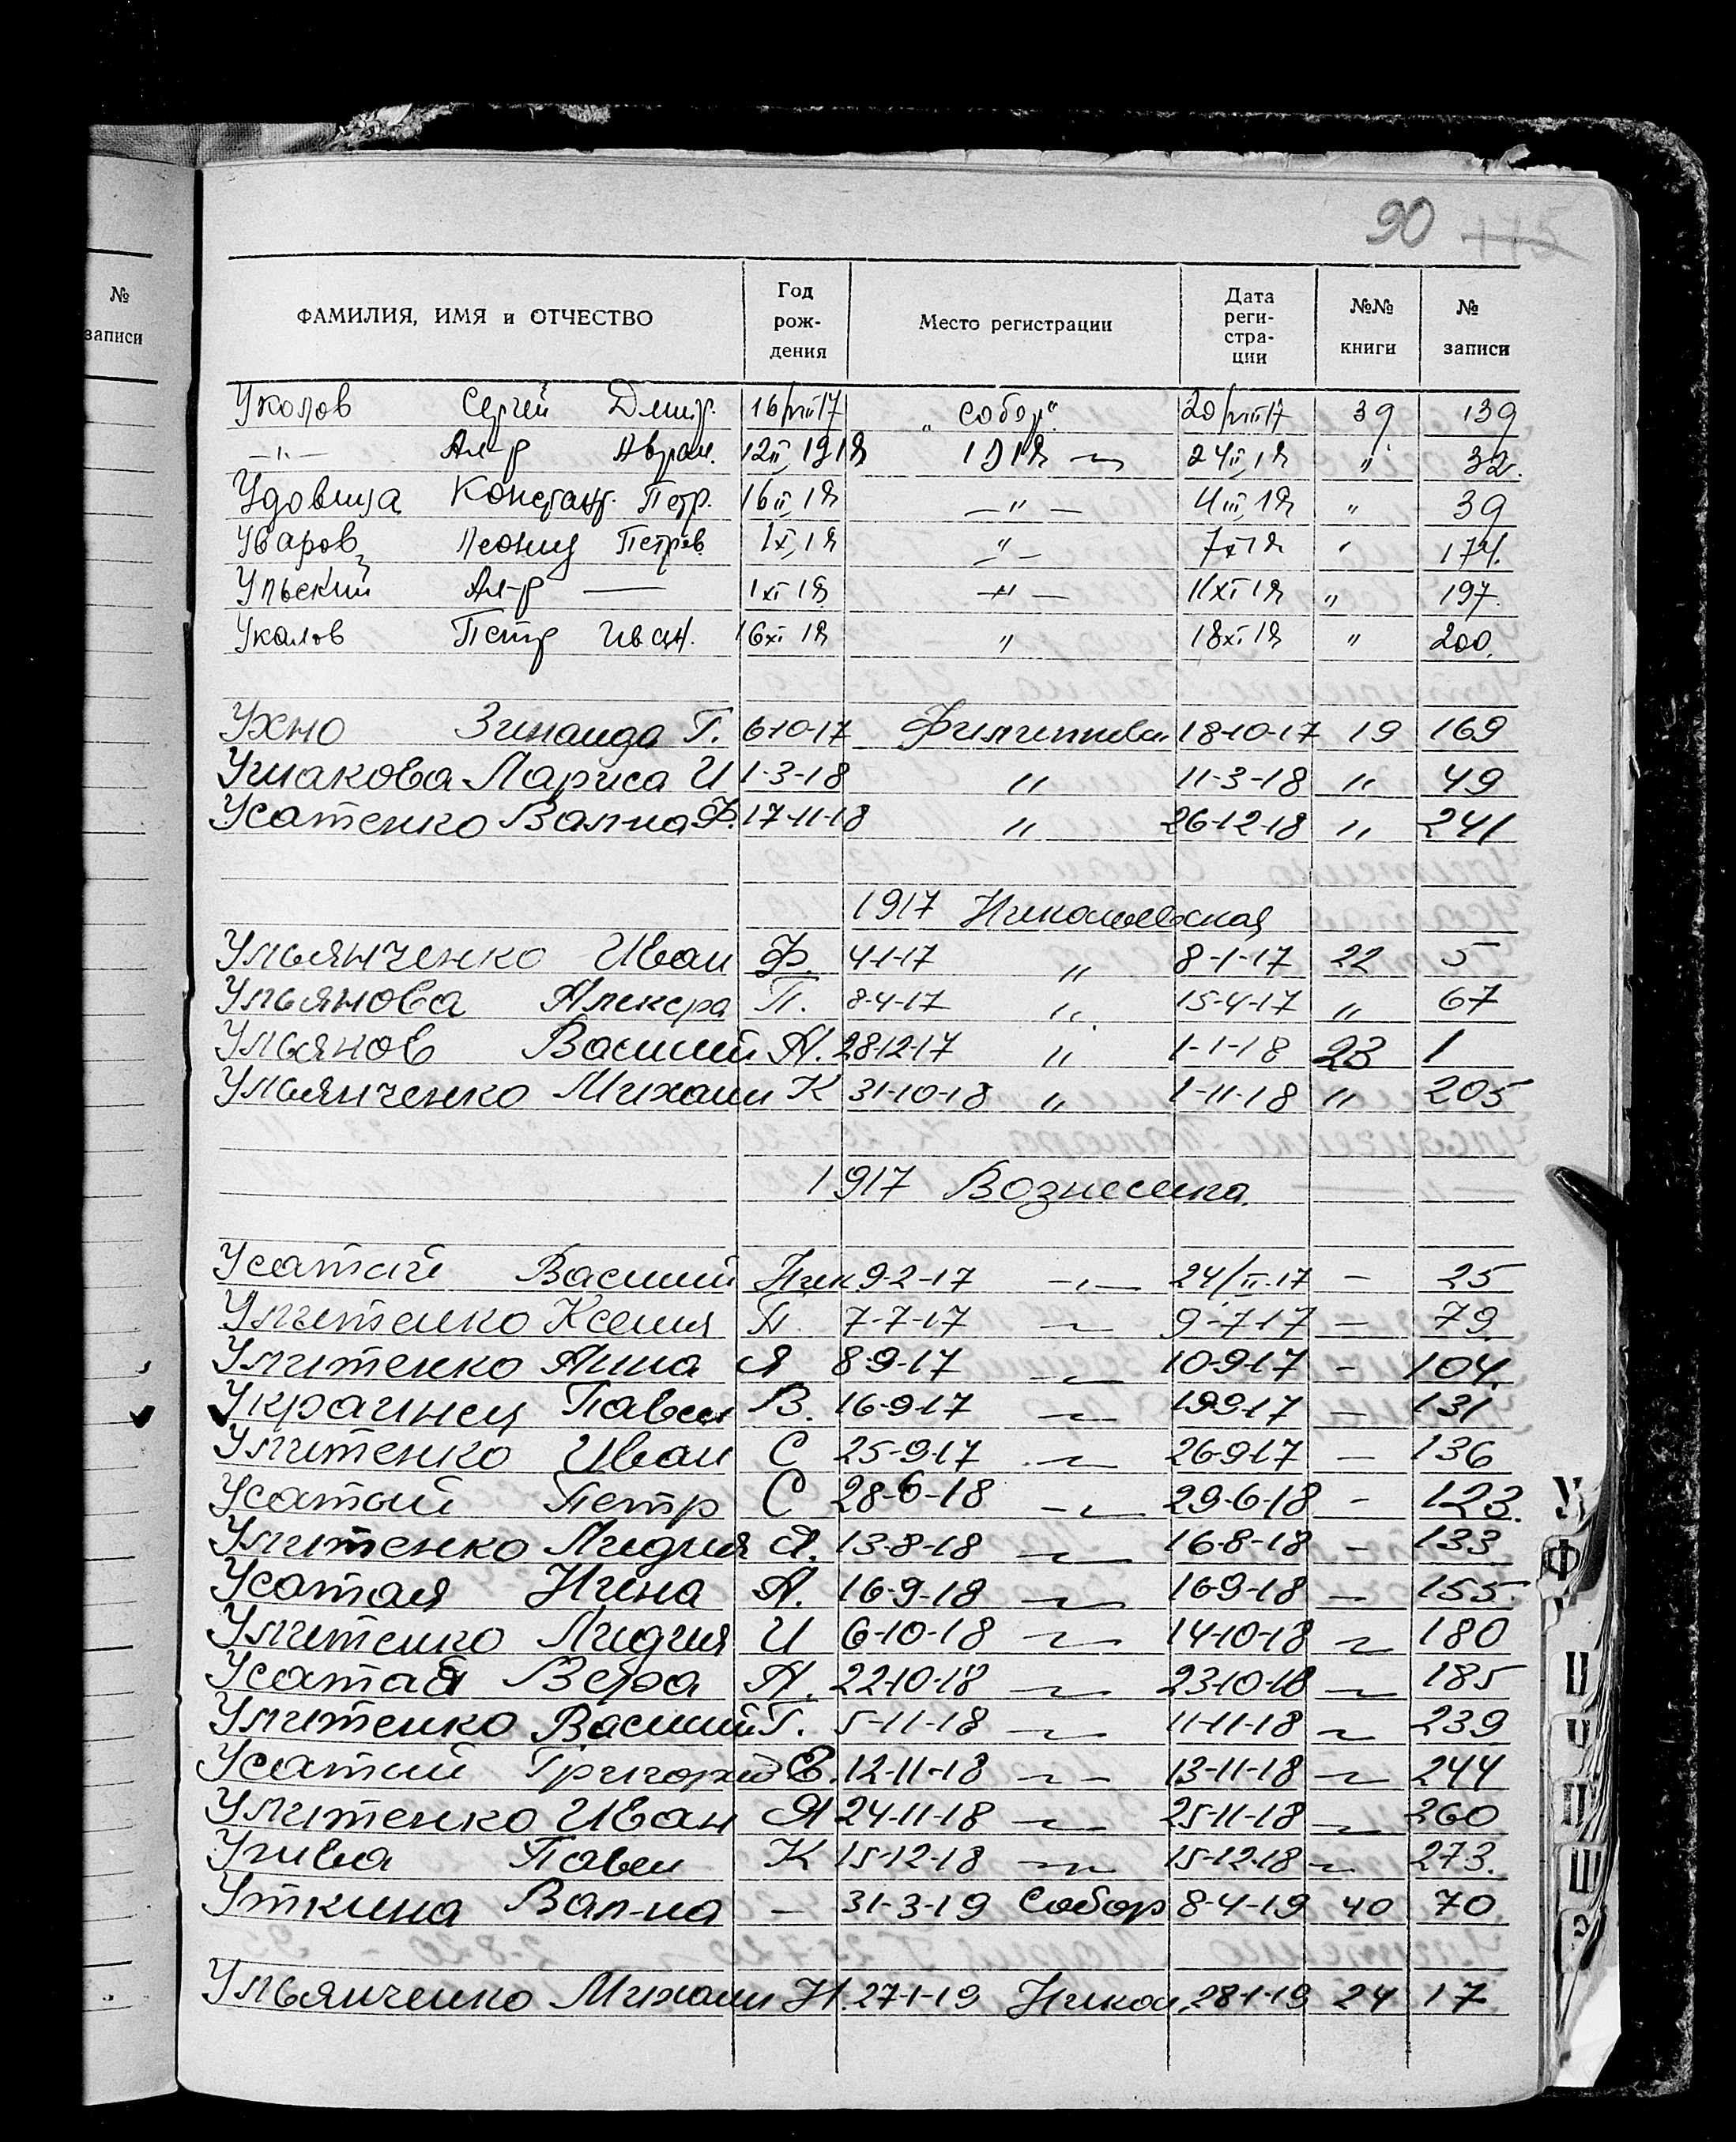 90 115
№ записи
ФАМИЛИЯ, ИМЯ и ОТЧЕСТВО Год рождения Место регистрации Дата регистрации №№ книги № записи
Уколов Сергей Дмитр. 16/VIII 17 „Собор“ 20/VIII 17 39 139
—"— Ал-р Аврам. 12 II, 1918 1918 〃 24 II, 18 " 32.
Удовица Констант. Петр. 16 II, 18 —"— 4 III, 18 " 39
Уваров Леонид Петров 1 X, 18 "— 7 X 18 " 174.
Ульский Ал-р — 1 XI 18 —"— 11 XI 18 " 197.
Укалов Петр Иван. 16 XI 18 " 18 XI 18 " 200.
Ухно Зинаида Г. 6-10-17 18-10-17 19 169
Ушакова Лариса И 1-3-18 " 11-3-18 " 49
Усатенко Вал-на Ф. 17-11-18 " 26-12-18 " 241
1917 Николаевская
Ульянченко Иван Ф. 4-1-17 " 8-1-17 22 5
Ульянова Алексра П. 8-4-17 " 15-4-17 " 67
Ульянов Василий А. 28-12-17 " 1-1-18 23 1
Ульянченко Михаил К 31-10-18 " 1-11-18 " 205
1917 Вознесенка.
Усатый Василий Ник 9-2-17 —"— 24/II-17 — 25
Улитенко Ксения П. 7-7-17 〃 9-7-17 — 79
Улитенко Анна Я 8-9-17 〃 10-9-17 — 104.
Украинец Павел В. 16-9-17 〃 19-9-17 — 131
Улитенко Иван С 25-9-17 〃 26-9-17 — 136
Усатый Петр С 28-6-18 〃 29-6-18 — 123.
Улитенко Лидия А. 13-8-18 〃 16-8-18 — 133
Усатая Нина А. 16-9-18 〃 16-9-18 — 155.
Улитенко Лидия И 6-10-18 〃 14-10-18 〃 180
Усатая Вера А. 22-10-18 〃 23-10-18 〃 185
Улитенко Василий Г. 5-11-18 〃 11-11-18 〃 239
Усатый Григорий Е. 12-11-18 〃 13-11-18 〃 244
Улитенко Иван Я 24-11-18 〃 25-11-18 〃 260
Павел К 15-12-18 〃 15-12-18 〃 273.
Уткина Вал-на — 31-3-19 Собор 8-4-19 40 70
Ульянченко Михаил Н. 27-1-19 Никол. 28-1-19 24 17
У
Ф
Ц
Ч
Ш
Э